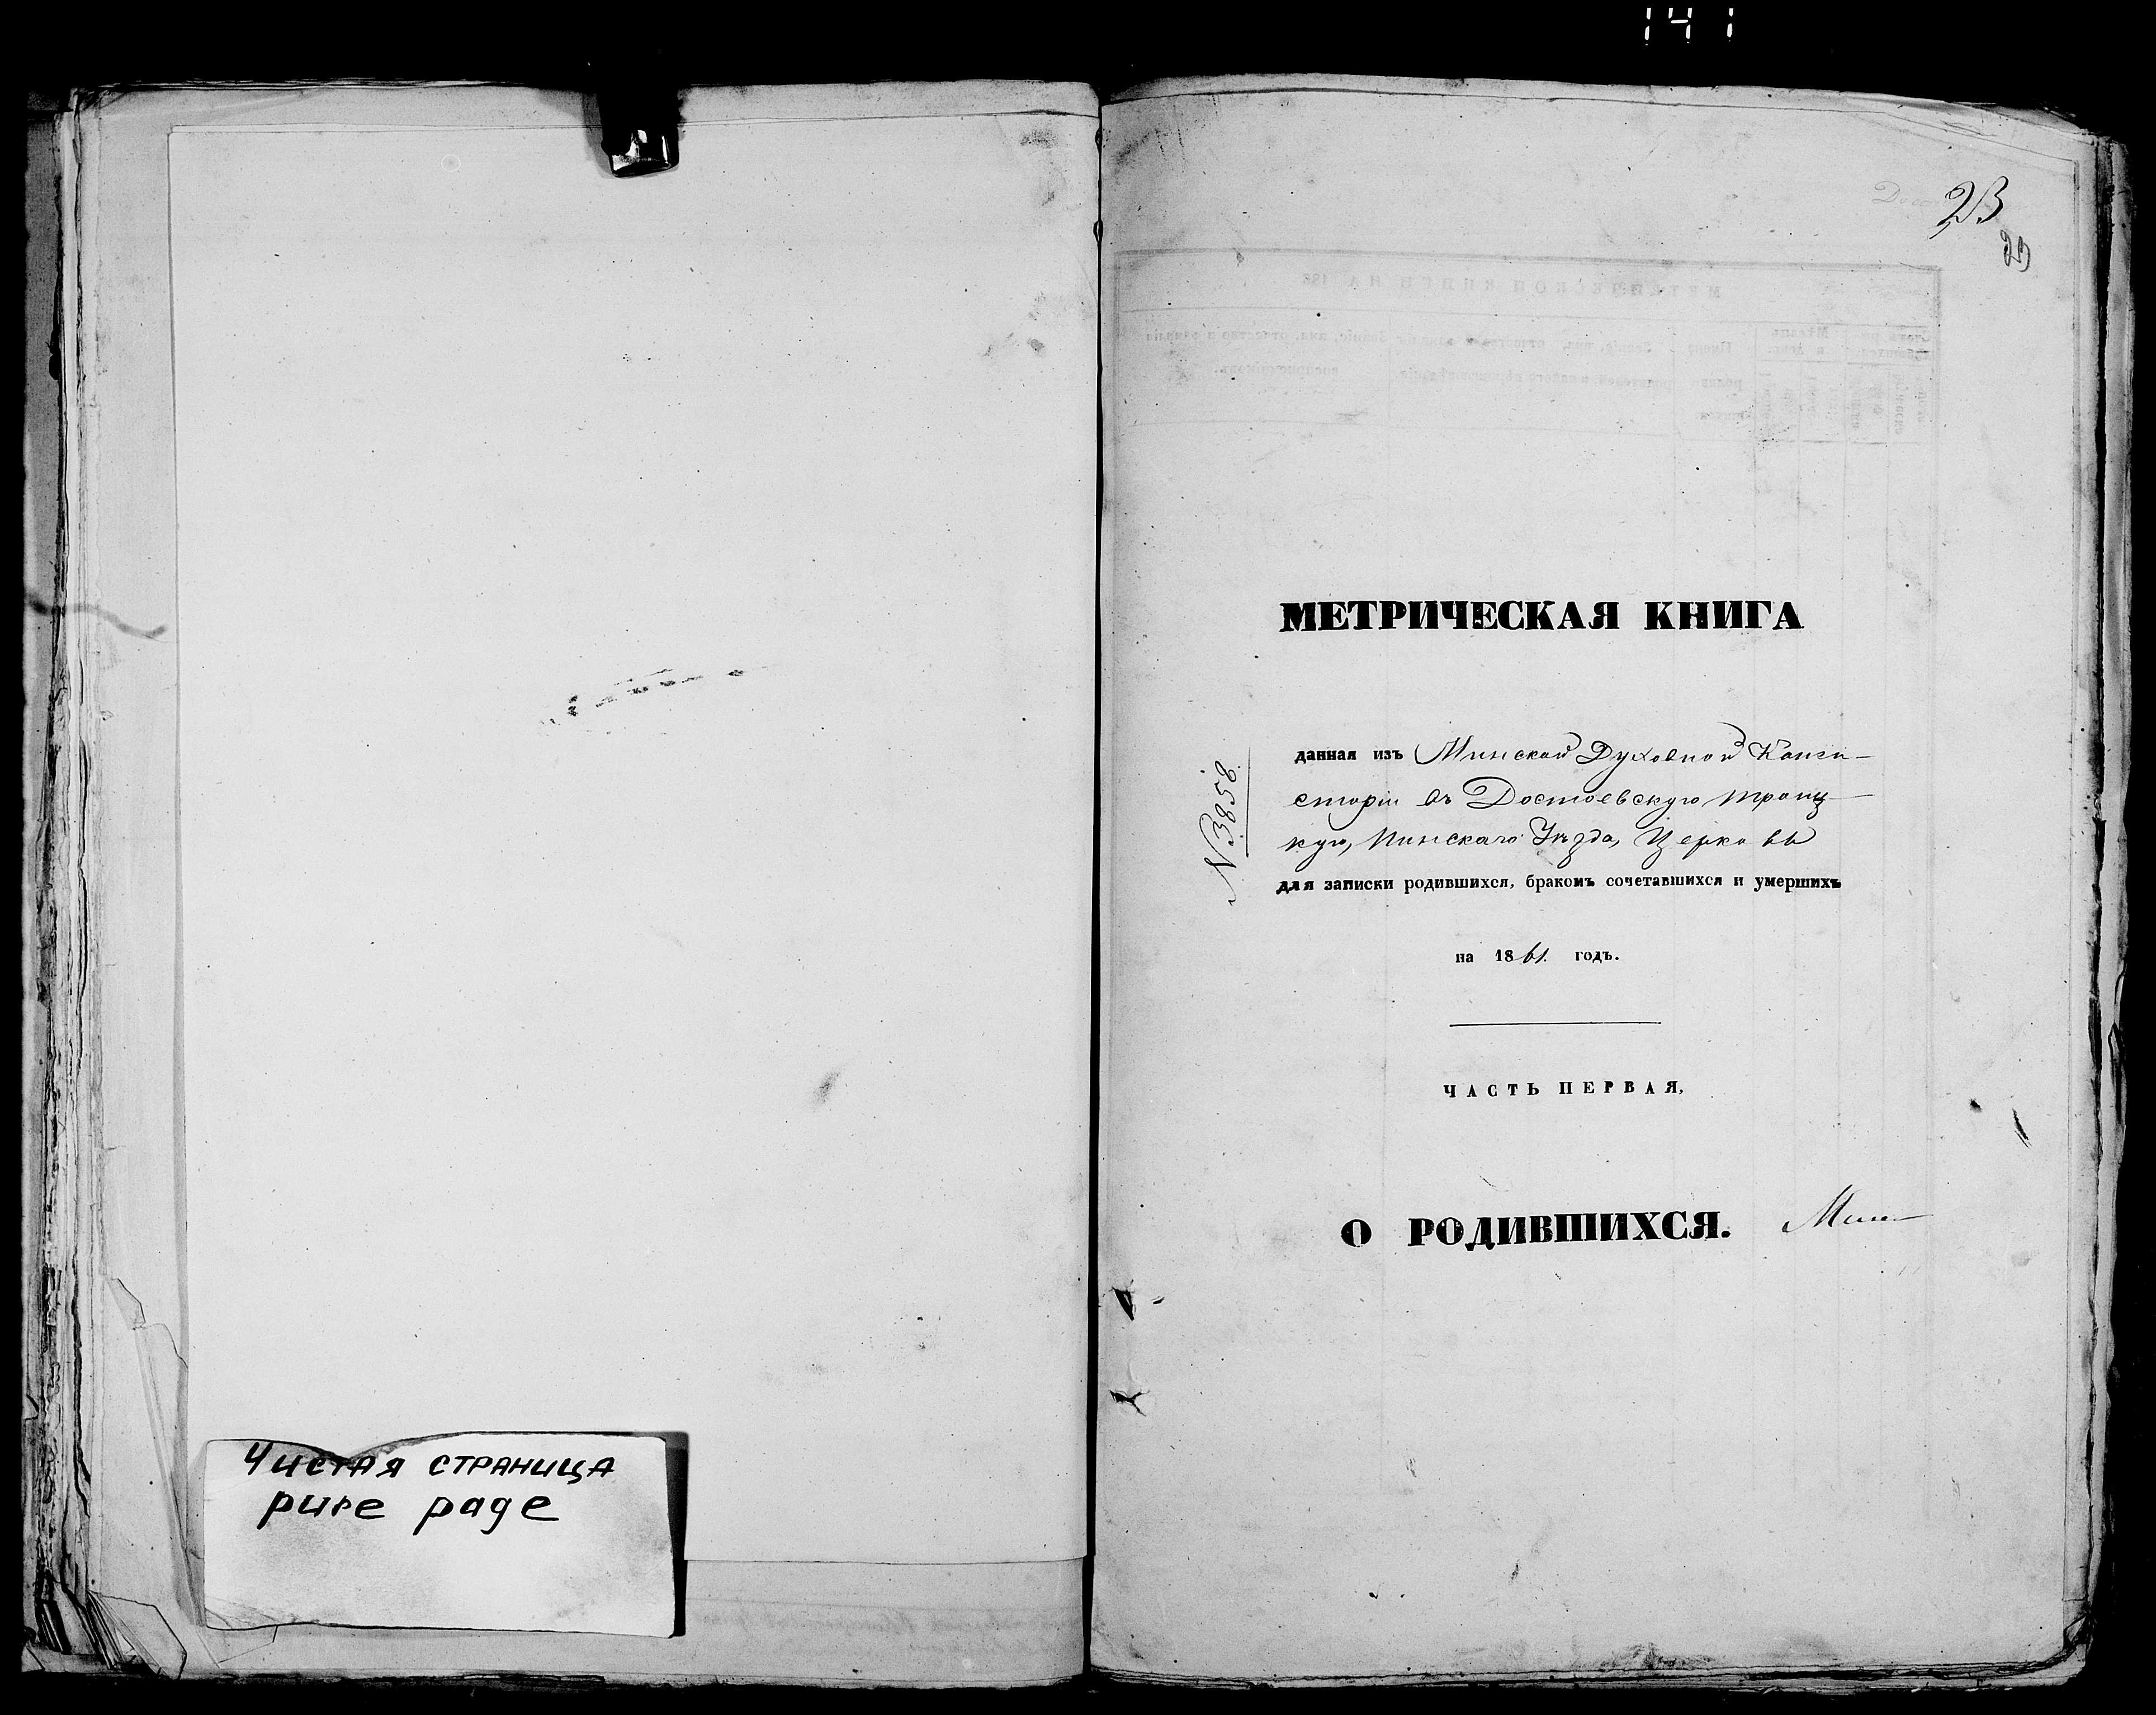 141
23
23
Чистая страница
pure page
МЕТРИЧЕСКАЯ КНИГА
№ 3858.
данная изъ Минской Духовной Конси-
сторіи въ Достоевскую Троиц-
кую, Пинскаго Уѣзда, Церковь
для записки родившихся, бракомъ сочетавшихся и умершихъ
на 1861. годъ.
ЧАСТЬ ПЕРВАЯ,
О РОДИВШИХСЯ.